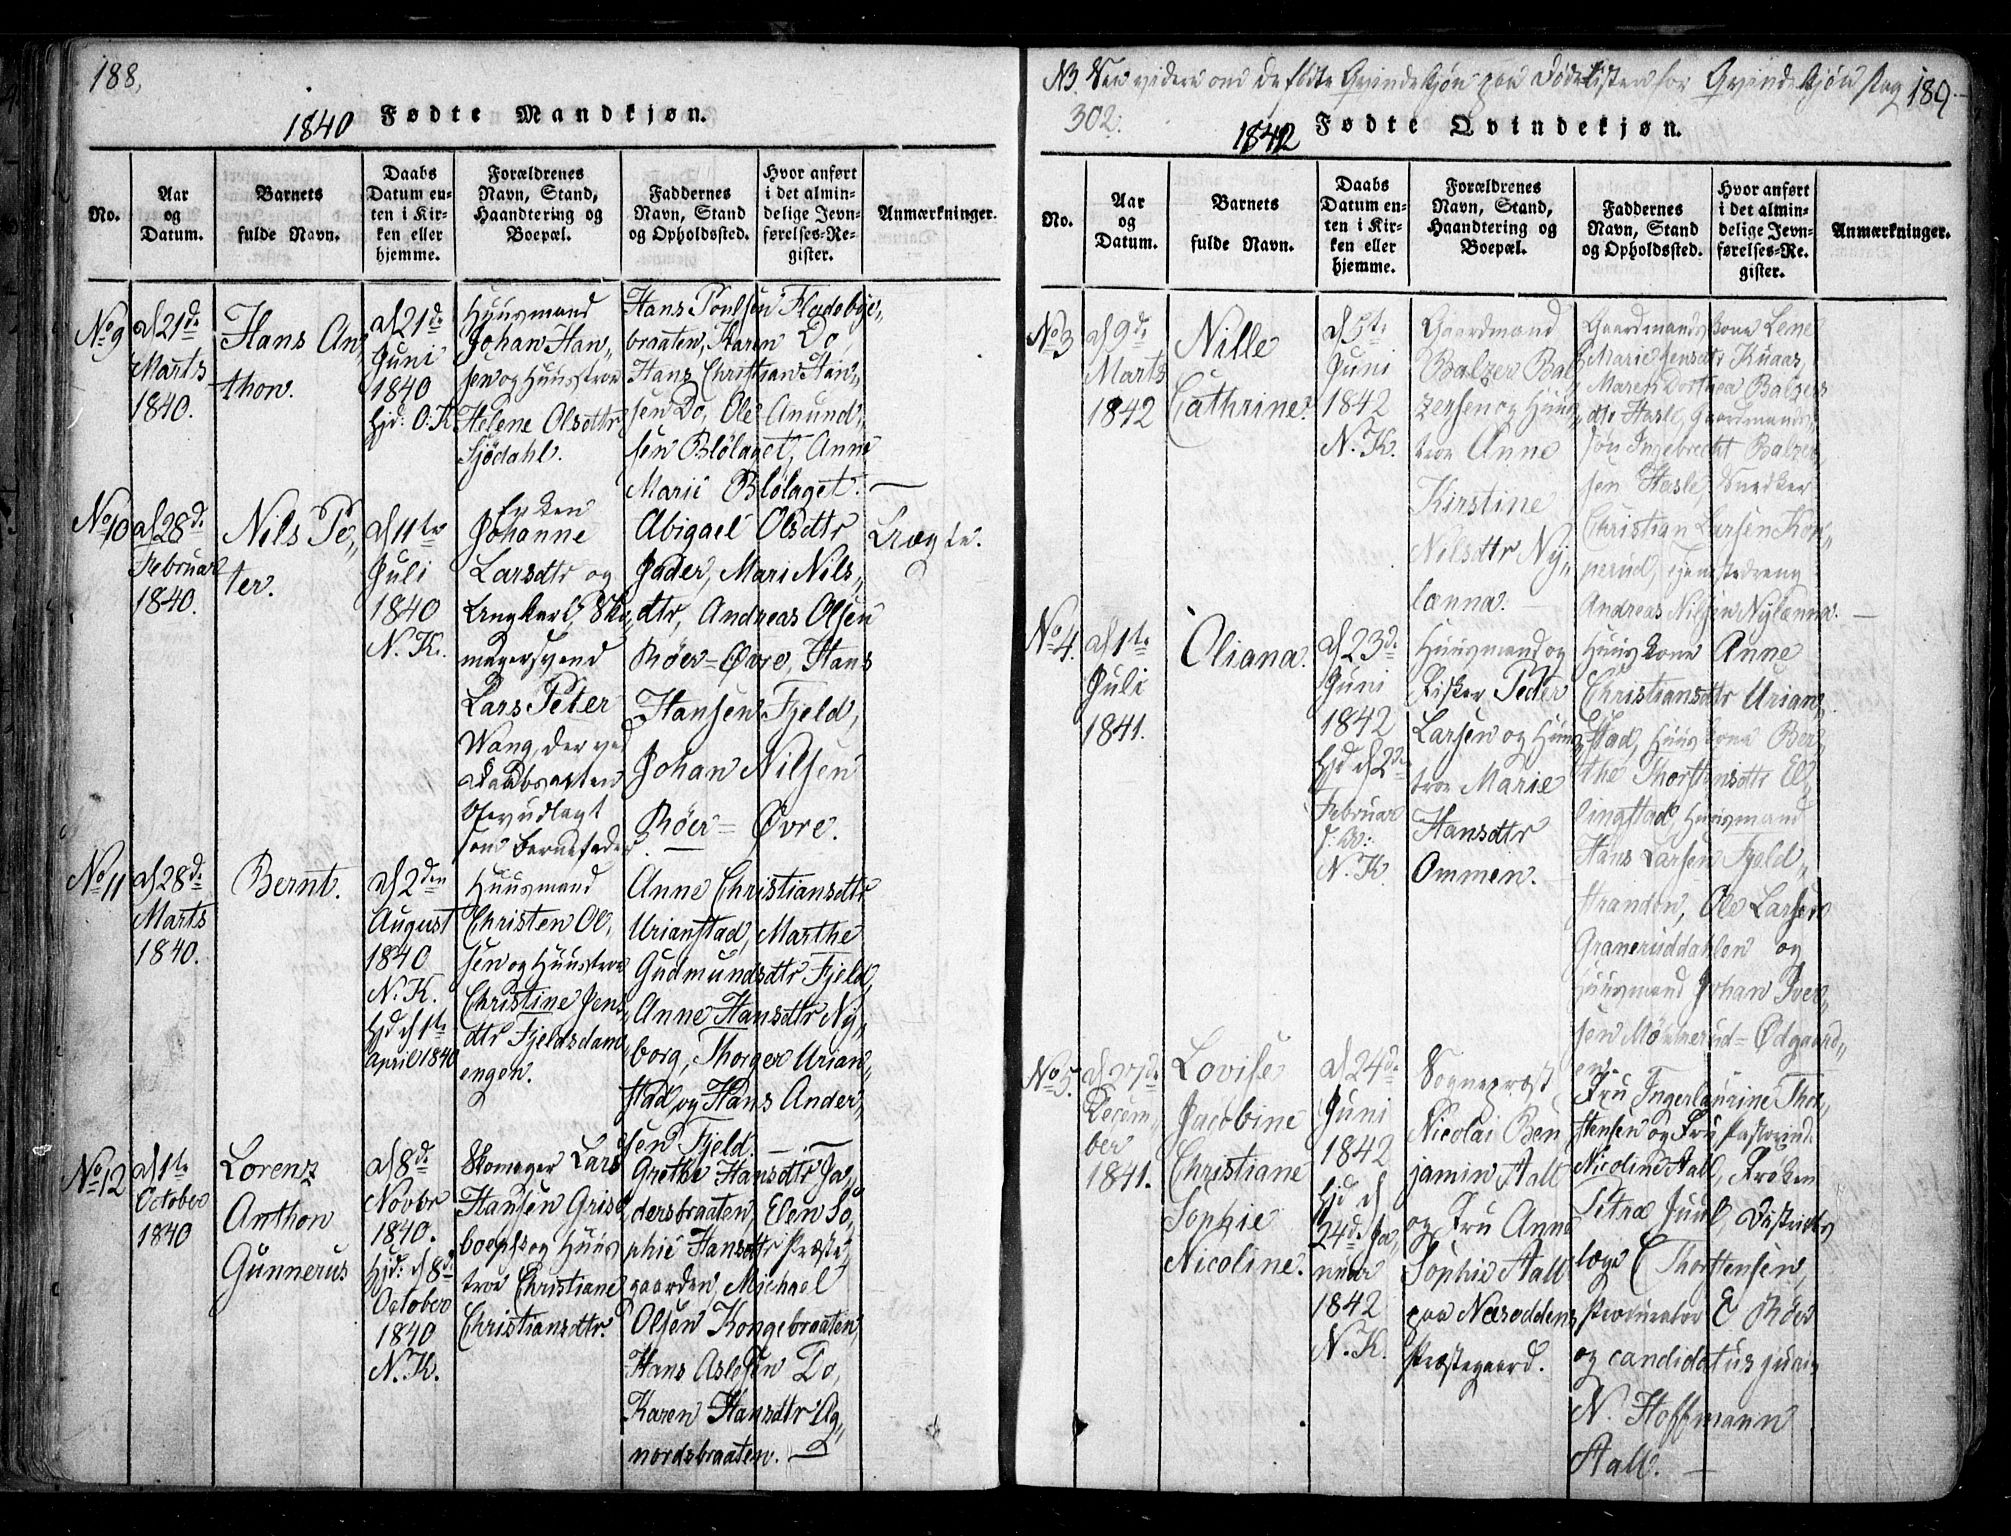 188,
1840 Fødte Mandkjøn.
No.
Aar
og
Datum.
Barnets
fulde Navn.
Daabs
Datum en-
ten i Kir-
ken eller
hjemme.
Forældrenes
Navn, Stand,
Haandtering og
Boepæl.
Faddernes
Navn, Stand
og Opholdssted.
Hvor anført
i det almin-
delige Jevn-
førelses-Re-
gister.
Anmærkninger.
No 9
d 21d.
Marts
1840.
Hans An
thon.
d 21d.
Juni
1840
Hjd: O. K.
Huusmand
Johan Han„
sen og Huustroe
Helene Olsdtr
Sjödahl.
Hans Poulsen Fladebye„
braaten, Karen Do,
Hans Christian Han„
sen Do, Ole Amund„
sen Blölaget, Anne
Marie Blölaget.
No 10
d 28d.
Februar
1840.
Nils Pe„
ter.
d 11te
Juli
1840
N. K.
Enken
Johanne
Larsdtr og
Ungkarl, Sko„
magersvend
Lars Peter
Wang, der ved
Daabsakten
blev udlagt
som Barnefader.
Abigael Olsdtr
Jader, Mari Nils„
dtr, Andreas Olsen
Röer=Øvre, Hans
Hansen Fjeld,
Johan Nilsen
Röer=Øvre.
Uægte.
No 11
d 28d.
Marts
1840.
Bernt.
d 2den
August
1840
N. K.
Hjd d 1te
April 1840
Huusmand
Christen Ol„
sen og Huustroe
Christine Jens„
dtr Fjeldsdam„
engen.
Anne Christiansdtr
Urianstad, Marthe
Gudmundsdtr Fjeld,
Anne Hansdtr Ny„
borg, Thorger Urian„
stad og Hans Ander„
sen Fjeld.
No 12
d 1te
October
1840
Lorenz
Anthon
Gunnerus
d 8d.
Novbr
1840.
Hjd: d 8d.
October
1840
N. K.
Skomager Lars
Hansen Grise
boepæl og Huus
troe Christiane
Christiansdtr.
Grethe Hansdtr Ja„
dersbraaten, Elen So„
phie Hansdtr Præste„
gaarden, Michael
Olsen Kongebraaten,
Hans Aslesen Do,
Karen Hansdtr Ag„
nordsbraaten.
NB See videre om de fødte Qvindekjön paa Fødelisten for Qvindekjön pag 189.
302.
1842 Fødte Qvindekjøn.
No.
Aar
og
Datum.
Barnets
fulde Navn.
Daabs
Datum en-
ten i Kir-
ken eller
hjemme.
Forældrenes
Navn, Stand,
Haandtering og
Boepæl.
Faddernes
Navn, Stand
og Opholdssted.
Hvor anført
i det almin-
delige Jevn-
førelses-Re-
gister.
Anmærkninger.
No 3
d 9d.
Marts
1842
Nille
Cathrine.
d 5te
Juni
1842
N. K.
Gaardmand
Balzer Bal„
zersen og Huus„
troe Anne
Kirstine
Nilsdtr Ny„
lænna.
Gaardmandskone Lene
Marie Jensdtr Knaas,
Maren Dorthea Balzers
dtr Hasle, Gaardmands„
søn Ingebrecht Balzer„
sen Hasle, Snedker
Christian Larsen Kop„
perud, Tjenestedreng
Andreas Nilsen Nylænna.
No 4.
d 1te
Juli
1841.
Oliana.
d 23d.
Juni
1842
Hjd d 2den
Februar
N. K.
Huusmand og
Fisker Peder
Larsen og Huus
troe Marie
Hansdtr
Ommen.
Huuskone Anne
Christiansdtr Urian„
stad, Huuskone Ber„
the Thorstensdtr El„
lingstad, Huusmand
Hans Larsen Fjeld„
stranden, Ole Larsen
Graneruddahlen og
Huusmand Johan Iver„
sen Mommerud=Ødegaard„
en.
No 5.
d 27d.
Decem„
ber
1841.
Lovise
Jacobine
Christiane
Sophie
Nicoline.
d 24d.
Juni
1842
Hjd d
24d. Ja„
nuar
1842
N. K.
Sognepræst
Nicolai Ben
jamin Aall
og Fru Anne
Sophie Aall
paa Næsoddens
Præstegaard.
Fru Ingerlaurine Thor„
stensen og Fru Pastorinde
Nicoline Aall, Frøken
Petræ Juul, Districts
læge C Thorstensen,
Procurator E Röer
og candidatus juris
N. Hoffmann
Aall.